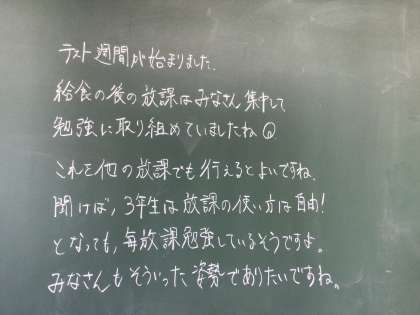 テスト週間が始まりました.
給食の後の放課はみなさん集中して
勉強に取り組めていましたね
これを他の放課でも行えるとよいですね.
聞けば, 3年生は放課の使い方は自由!
となっても, 毎放課勉強しているそうですよ。
みなさんもそういった姿勢でありたいですね。